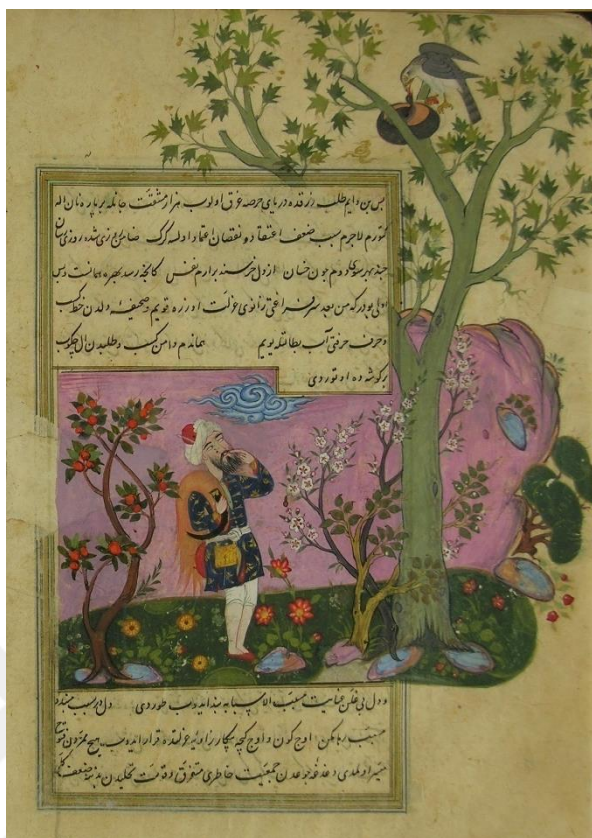 بس بن دایم طلب رزقده دریای حرصه غرق اولوب هزار مشقت جانله بر پاره نان اله
کتورم لاجرم سبب ضعف اعتقاد و نقصان اعتماد اولسه کرک ضامن روزی شده روزی رسان
چند بهر سوی دوم چون خسان از دل خرسند برارم نفس کانچه رسد بهره همانست و بس
اولی بودر که من بعد سر فراغتی زانوی عزلت اوزره قویم و صحیفه دلدن خط کسب
و حرف حرفتی آب بطالتله یویم دامن کسب و طلبدن ال چکوب
بر کوشه ده اوتوردی
و دل بی غلن عنایت مسبب الاسبابه بند ایدوب طوردی دل در سبب مبند
مسبب رها مکن اوچ کون و اوچ کیجه بیکار زاویه عزلتده قرار ایدوب هیچ ممردن فتوح
میسر اولمدی دغدغه جوعدن جمعیت خاطری متفرق و قوت تحلیلدن بنیه ضعیف